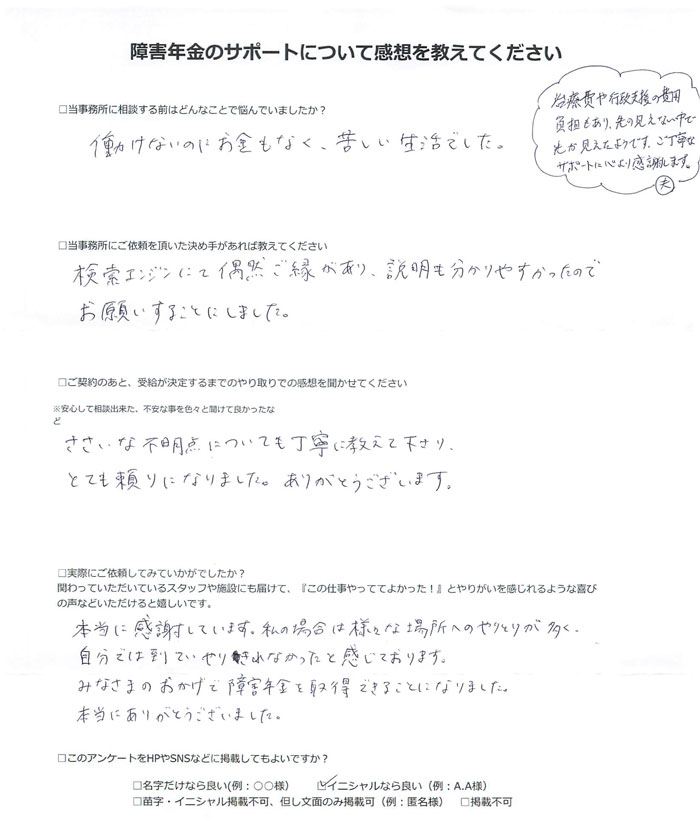 障害年金のサポートについて感想を教えてください
治療費や行政支援の費用
負担もあり、先の見えない中で
光が見えたようです。ご丁寧な
サポートに心より感謝します。
夫
□当事務所に相談する前はどんなことで悩んでいましたか？
働けないのにお金もなく、苦しい生活でした。
□当事務所にご依頼を頂いた決め手があれば教えてください
検索エンジンにて偶然ご縁があり、説明も分かりやすかったので
お願いすることにしました。
□ご契約のあと、受給が決定するまでのやり取りでの感想を聞かせてください
※安心して相談出来た、不安な事を色々と聞けて良かったな
ど
ささいな不明点についても丁寧に教えて下さり、
とても頼りになりました。ありがとうございます。
□実際にご依頼してみていかがでしたか？
関わっていただいているスタッフや施設にも届けて、『この仕事やっててよかった！』とやりがいを感じれるような喜び
の声などいただけると嬉しいです。
本当に感謝しています。私の場合は様々な場所へのやりとりが多く、
自分では到ていやりきれなかったと感じております。
みなさまのおかげで障害年金を取得できることになりました。
本当にありがとうございました。
□このアンケートをHPやSNSなどに掲載してもよいですか？
□名字だけなら良い(例：〇〇様） ☑イニシャルなら良い（例：A.A様）
□苗字・イニシャル掲載不可、但し文面のみ掲載可（例：匿名様） □掲載不可